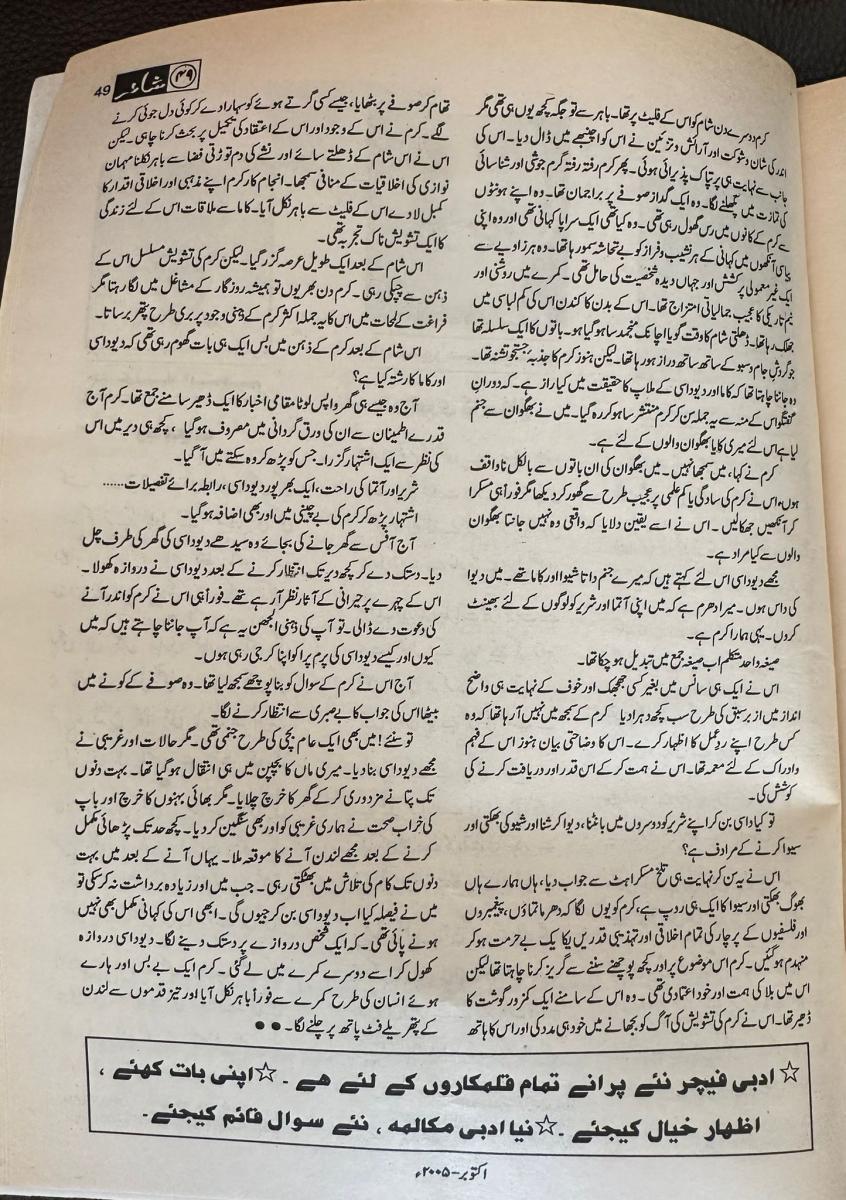 49 شاعر ۴۹
کرم دوسرے دن شام کو اس کے فلیٹ پر تھا۔ باہر سے تو جگہ کچھ یوں ہی تھی مگر
اندر کی شان و شوکت اور آرائش و تزئین نے اس کو اچنبھے میں ڈال دیا۔ اس کی
جانب سے نہایت ہی پر تپاک پذیرائی ہوئی۔ پھر کرم رفتہ رفتہ گرم جوشی اور شناسائی
کی تمازت میں پگھلنے لگا۔ وہ ایک گداز صوفے پر براجمان تھا۔ وہ اپنے ہونٹوں
سے کرم کے کانوں میں رس گھول رہی تھی۔ وہ کیا تھی ایک سراپا کہانی تھی اور وہ اپنی
پیاسی آنکھوں میں کہانی کے ہر نشیب و فراز کو بے تحاشہ سمو رہا تھا۔ وہ ہر زاویے سے
ایک غیر معمولی پرکشش اور جہاں دیدہ شخصیت کی حامل تھی۔ کمرے میں روشنی اور
نیم تاریکی کا عجیب جمالیاتی امتزاج تھا۔ اس کے بدن کا کندن اس کی کم لباسی میں
جھلک رہا تھا۔ ڈھلتی شام کا وقت گویا اچانک منجمد سا ہو گیا ہو۔ باتوں کا ایک سلسلہ تھا
جو گردشِ جام و سبو کے ساتھ ساتھ دراز ہو رہا تھا۔ لیکن ہنوز کرم کا جذبۂ جستجو تشنہ تھا۔
وہ جاننا چاہتا تھا کہ کاما اور دیوداسی کے ملاپ کا حقیقت میں کیا راز ہے۔ کہ دورانِ
گفتگو اس کے منہ سے یہ جملہ سن کر کرم منتشر سا ہو کر رہ گیا۔ میں نے بھگوان سے جنم
لیا ہے اس لئے میری کایا بھگوان والوں کے لئے ہے۔
کرم نے کہا، میں سمجھا نہیں۔ میں بھگوان کی ان باتوں سے بالکل ناواقف
ہوں، اس نے کرم کی سادگی یا کم علمی پر عجیب طرح سے گھور کر دیکھا مگر فوراً ہی مسکرا
کر آنکھیں جھکا لیں۔ اس نے اسے یقین دلایا کہ واقعی وہ نہیں جانتا بھگوان
والوں سے کیا مراد ہے۔
مجھے دیوداسی اس لئے کہتے ہیں کہ میرے جنم داتا شیوا اور کاما تھے۔ میں دیوا
کی داس ہوں۔ میرا دھرم ہے کہ میں اپنی آتما اور شریر کو لوگوں کے لئے بھینٹ
کروں۔ یہی ہمارا کرم ہے۔
صیغہ واحد متکلم اب صیغہ جمع میں تبدیل ہو چکا تھا۔
اس نے ایک ہی سانس میں بغیر کسی جھجھک اور خوف کے نہایت ہی واضح
انداز میں ازبر سبق کی طرح سب کچھ دہرا دیا کرم کے سمجھ میں نہیں آ رہا تھا کہ وہ
کس طرح اپنے ردِعمل کا اظہار کرے۔ اس کا وضاحتی بیان ہنوز اس کے فہم
و ادراک کے لئے معمہ تھا۔ اس نے ہمت کر کے اس قدر اور دریافت کرنے کی
کوشش کی۔
تو کیا داسی بن کر اپنے شریر کو دوسروں میں بانٹنا، دیوا کرشنا اور شیو کی بھکتی اور
سیوا کرنے کے مرادف ہے؟
اس نے یہ سن کر نہایت ہی تلخ مسکراہٹ سے جواب دیا، ہاں ہمارے ہاں
بھوگ بھکتی اور سیوا کا ایک ہی روپ ہے، کرم کو یوں لگا کہ دھرماتماؤں، پیغمبروں
اور فلسفیوں کے پرچار کی تمام اخلاقی اور تہذیبی قدریں یکایک بے حرمت ہو کر
منہدم ہو گئیں۔ کرم اس موضوع پر اور کچھ پوچھنے سننے سے گریز کرنا چاہتا تھا لیکن
اس میں بلا کی ہمت اور خود اعتمادی تھی۔ وہ اس کے سامنے ایک کمزور گوشت کا
ڈھیر تھا۔ اس نے کرم کی تشویش کی آگ کو بجھانے میں خود ہی مدد کی اور اس کا ہاتھ
تھام کر صوفے پر بٹھایا، جیسے کسی گرتے ہوئے کو سہارا دے کر کوئی دل جوئی کرنے
لگے۔ کرم نے اس کے وجود اور اس کے اعتقاد کی تکمیل پر بحث کرنا چاہی۔ لیکن
اس نے اس شام کے ڈھلتے سائے اور نشے کی دم توڑتی فضا سے باہر نکلنا مہمان
نوازی کی اخلاقیات کے منافی سمجھا۔ انجام کار کرم اپنے مذہبی اور اخلاقی اقدار کا
کمبل لادے اس کے فلیٹ سے باہر نکل آیا۔ کاما سے ملاقات اس کے لئے زندگی
کا ایک تشویش ناک تجربہ تھی۔
اس شام کے بعد ایک طویل عرصہ گزر گیا۔ لیکن کرم کی تشویش مسلسل اس کے
ذہن سے چپکی رہی۔ کرم دن بھر یوں تو ہمیشہ روزگار کے مشاغل میں لگا رہتا مگر
فراغت کے لمحات میں اس کا یہ جملہ اکثر کرم کے ذہنی وجود پر بری طرح پتھر برساتا۔
اس شام کے بعد کرم کے ذہن میں بس ایک ہی بات گھوم رہی تھی کہ دیوداسی
اور کاما کا رشتہ کیا ہے؟
آج وہ جیسے ہی گھر واپس لوٹا مقامی اخبار کا ایک ڈھیر سامنے جمع تھا۔ کرم آج
قدرے اطمینان سے ان کی ورق گردانی میں مصروف ہو گیا، کچھ ہی دیر میں اس
کی نظر سے ایک اشتہار گزرا۔ جس کو پڑھ کر وہ سکتے میں آ گیا۔
شریر اور آتما کی راحت، ایک بھرپور دیوداسی، رابطہ برائے تفصیلات......
اشتہار پڑھ کر کرم کی بے چینی میں اور بھی اضافہ ہو گیا۔
آج آفس سے گھر جانے کی بجائے وہ سیدھے دیوداسی کی گھر کی طرف چل
دیا۔ دستک دے کر کچھ دیر تک انتظار کرنے کے بعد دیوداسی نے دروازہ کھولا۔
اس کے چہرے پر حیرانی کے آثار نظر آ رہے تھے۔ فوراً ہی اس نے کرم کو اندر آنے
کی دعوت دے ڈالی۔ تو آپ کی ذہنی الجھن یہ ہے کہ آپ جاننا چاہتے ہیں کہ میں
کیوں اور کیسے دیوداسی کی پرم پرا کو اپنا کر جی رہی ہوں۔
آج اس نے کرم کے سوال کو بنا پوچھے سمجھ لیا تھا۔ وہ صوفے کے کونے میں
بیٹھا اس کی جواب کا بے صبری سے انتظار کرنے لگا۔
تو سنئے! میں بھی ایک عام بچی کی طرح جنمی تھی۔ مگر حالات اور غریبی نے
مجھے دیوداسی بنا دیا۔ میری ماں کا بچپن میں ہی انتقال ہو گیا تھا۔ بہت دنوں
تک پتا نے مزدوری کر کے گھر کا خرچ چلایا۔ مگر بھائی بہنوں کا خرچ اور باپ
کی خراب صحت نے ہماری غریبی کو اور بھی سنگین کر دیا۔ کچھ حد تک پڑھائی مکمل
کرنے کے بعد مجھے لندن آنے کا موقعہ ملا۔ یہاں آنے کے بعد میں بہت
دنوں تک کام کی تلاش میں بھٹکتی رہی۔ جب میں اور زیادہ برداشت نہ کر سکی تو
میں نے فیصلہ کیا اب دیوداسی بن کر جیوں گی۔ ابھی اس کی کہانی مکمل بھی نہیں
ہونے پائی تھی۔ کہ ایک شخص دروازے پر دستک دینے لگا۔ دیوداسی دروازہ
کھول کر اسے دوسرے کمرے میں لے گئی۔ کرم ایک بے بس اور ہارے
ہوئے انسان کی طرح کمرے سے فوراً باہر نکل آیا اور تیز قدموں سے لندن
کے پتھریلے فٹ پاتھ پر چلنے لگا۔ ●●
☆ ادبی فیچر نئے پرانے تمام قلمکاروں کے لئے ہے۔ ☆ اپنی بات کہئے،
اظہار خیال کیجئے۔ ☆ نیا ادبی مکالمہ، نئے سوال قائم کیجئے۔
اکتوبر-۲۰۰۵ء